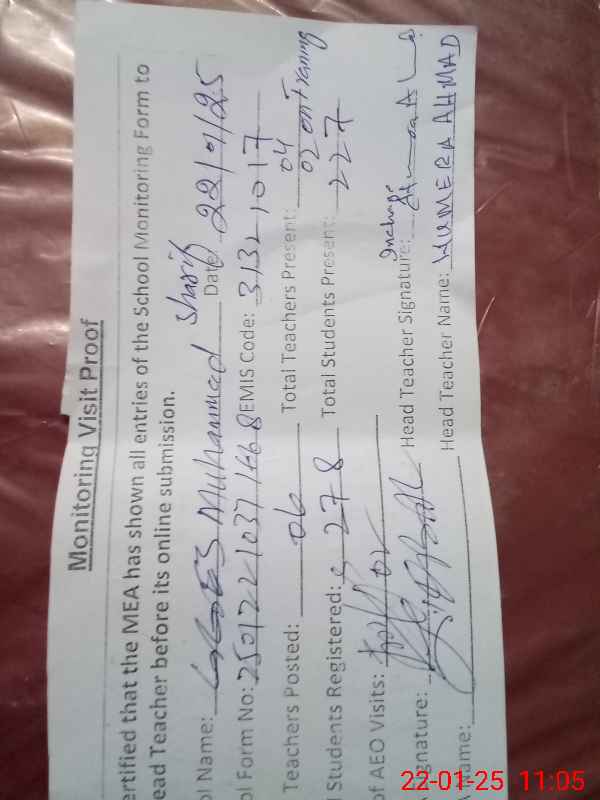 Monitoring Visit Proof
ertified that the MEA has shown all entries of the School Monitoring Form to
ead Teacher before its online submission.
ol Name: Muhammad Sharif Date: 22/1/25
ol Form No: 25012210371668 EMIS Code: 31321017
Teachers Posted: 06 Total Teachers Present: 04
02 on Training
l Students Registered: 278 Total Students Present: 227
of AEO Visits: 02
gnature: Head Teacher Signature:
Name: Head Teacher Name: HUMERA AHMAD
22-01-25 11:05